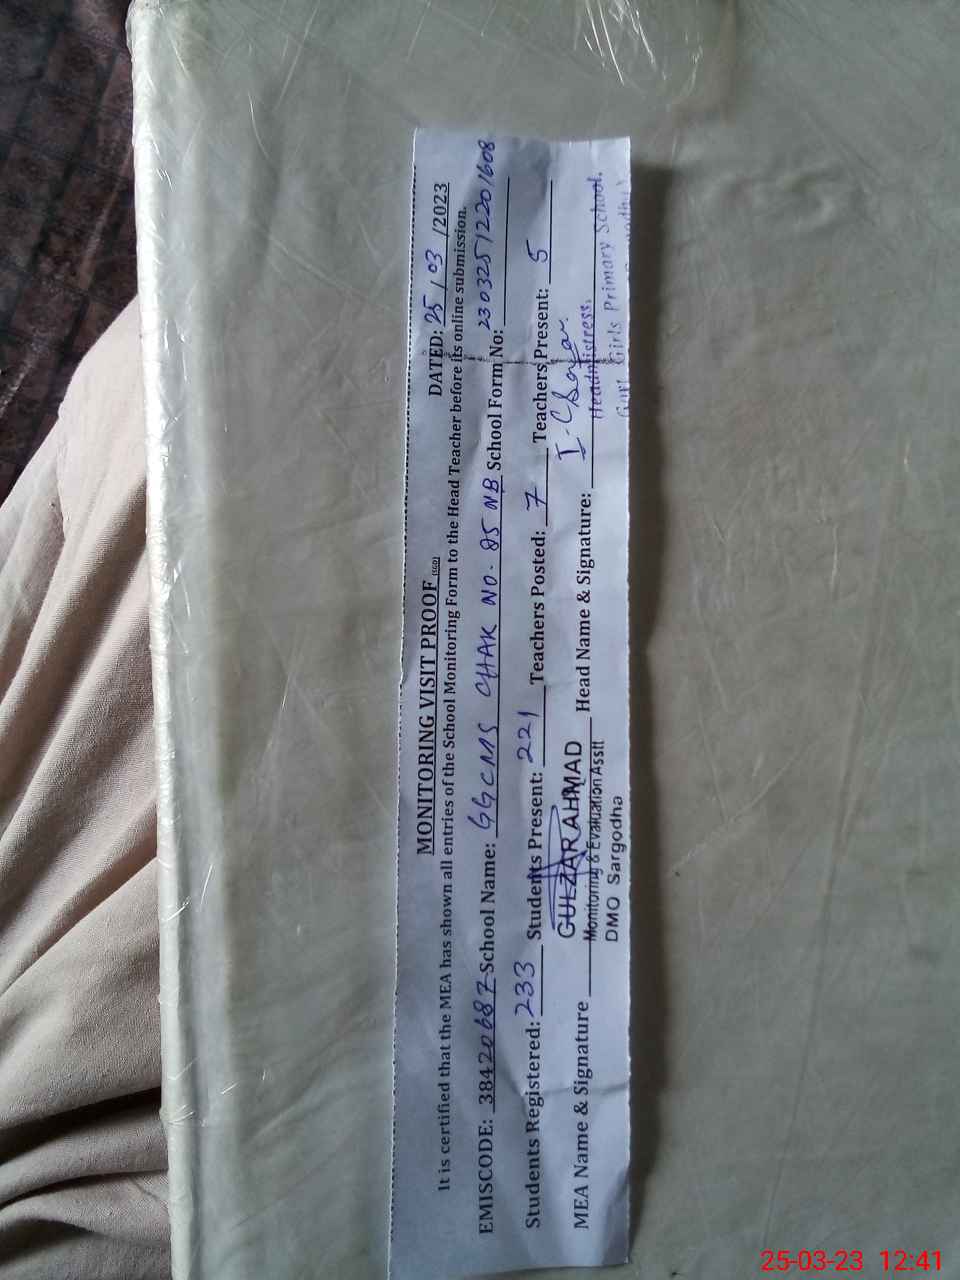 MONITORING VISIT PROOF (SGD)
DATED: 25 / 03 /2023
It is certified that the MEA has shown all entries of the School Monitoring Form to the Head Teacher before its online submission.
EMISCODE: 38420687 School Name: GGCMS CHAK NO. 85 NB School Form No: 23032512201608
Students Registered: 233 Students Present: 221 Teachers Posted: 7 Teachers Present: 5
MEA Name & Signature GULZAR AHMAD Head Name & Signature:
Monitoring & Evaluation Asstt
DMO Sargodha
Headmistress,
Girls Primary School,
25-03-23 12:41